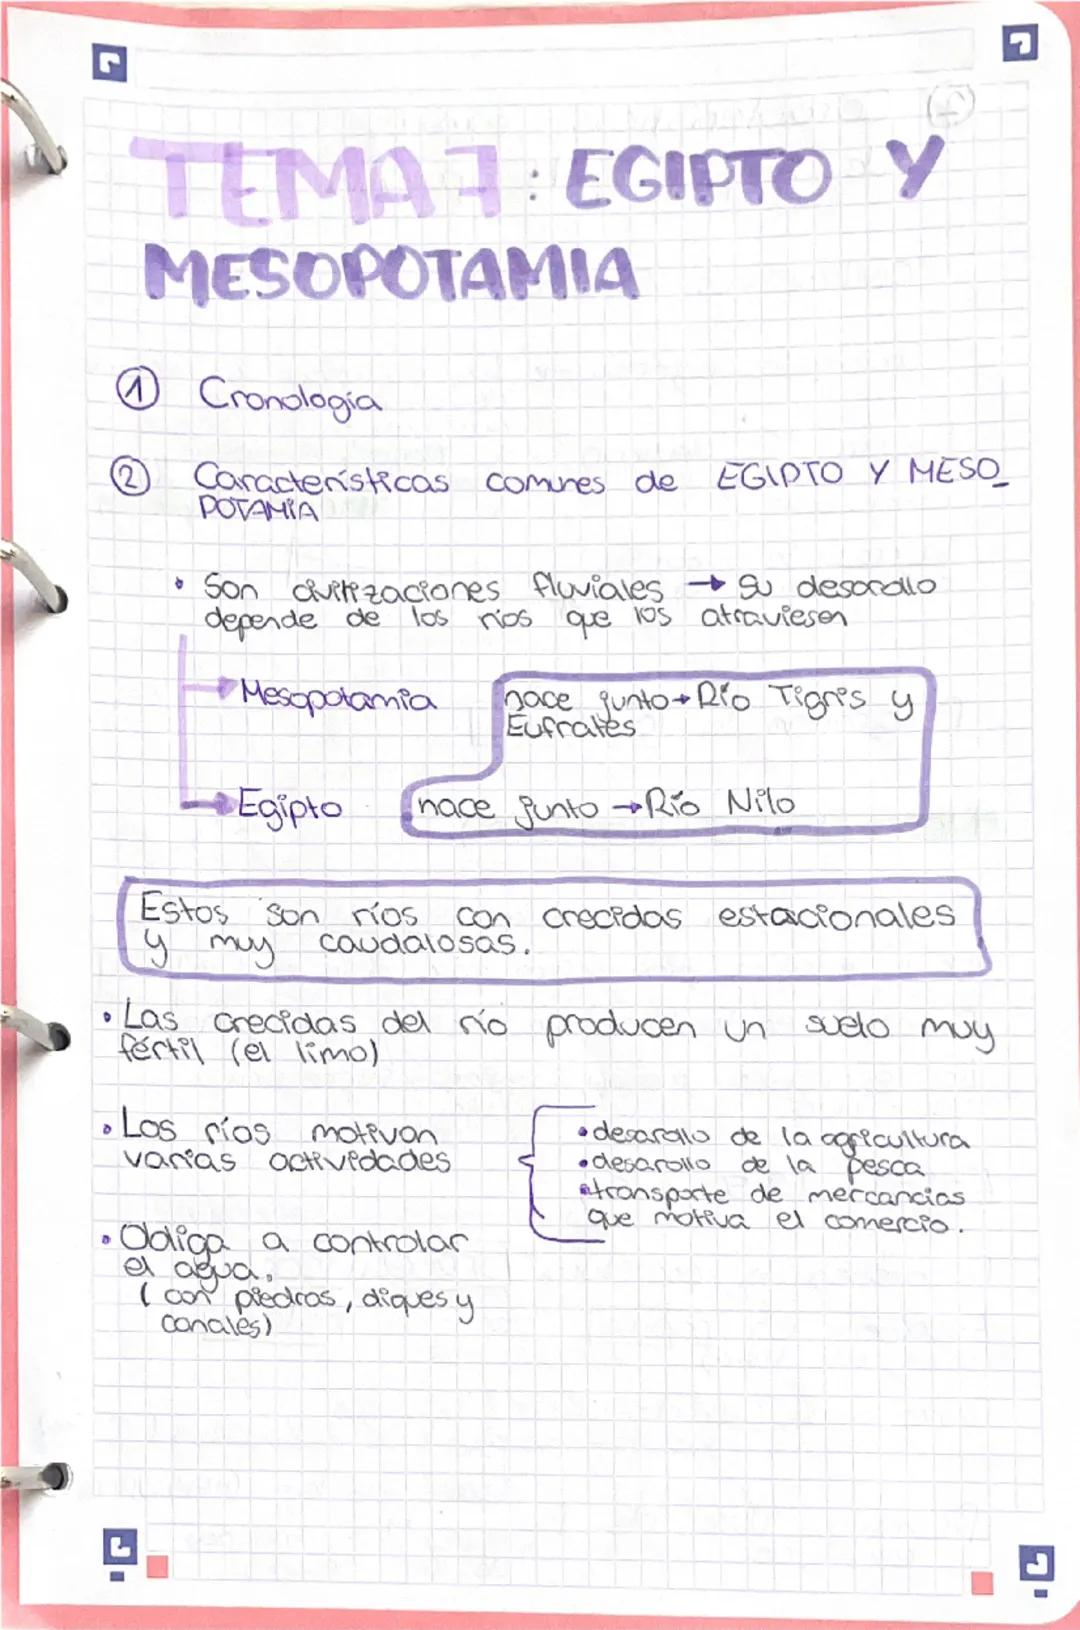 TEMA 7: EGIPTO Y
MESOPOTAMIA
① Cronología
② Características comunes de EGIPTO Y MESO_
POTAMIA
• Son civilizaciones fluviales → Su desarollo
depende de los ríos que los atraviesen
→ Mesopotamia
nace junto → Río Tigris y
Eufrates
→ Egipto
nace junto → Río Nilo
Estos son ríos con crecidas estacionales
y muy caudalosas.
• Las crecidas del río producen un suelo muy
fértil (el limo)
• Los ríos motivan
varias actividades
• desarollo de la agricultura
• desarollo de la pesca
• transporte de mercancias
que motiva el comercio.
• Obliga a controlar
el agua.
(con piedras, diques y
canales)